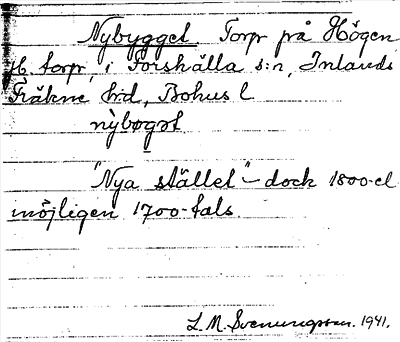 Nybygget. Torp på Högen
H. torp, i Forshälla s:n, Inlands
Fräkne hd, Bohus l
nỳbȯgət
"Nya stället" – dock 1800-el
möjligen 1700-tals.
L. M. Svenungsson. 1941.